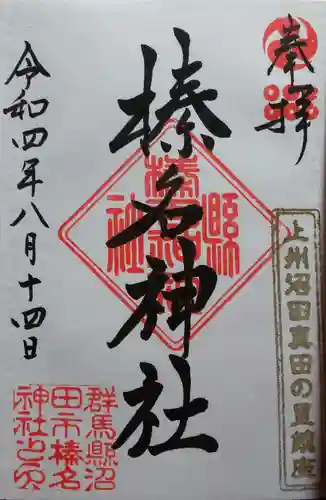 奉拝
上州沼田真田の里鎮座
榛名神社
縣社
榛名神社
令和四年八月十四日
群馬縣沼
田市榛名
神社之印